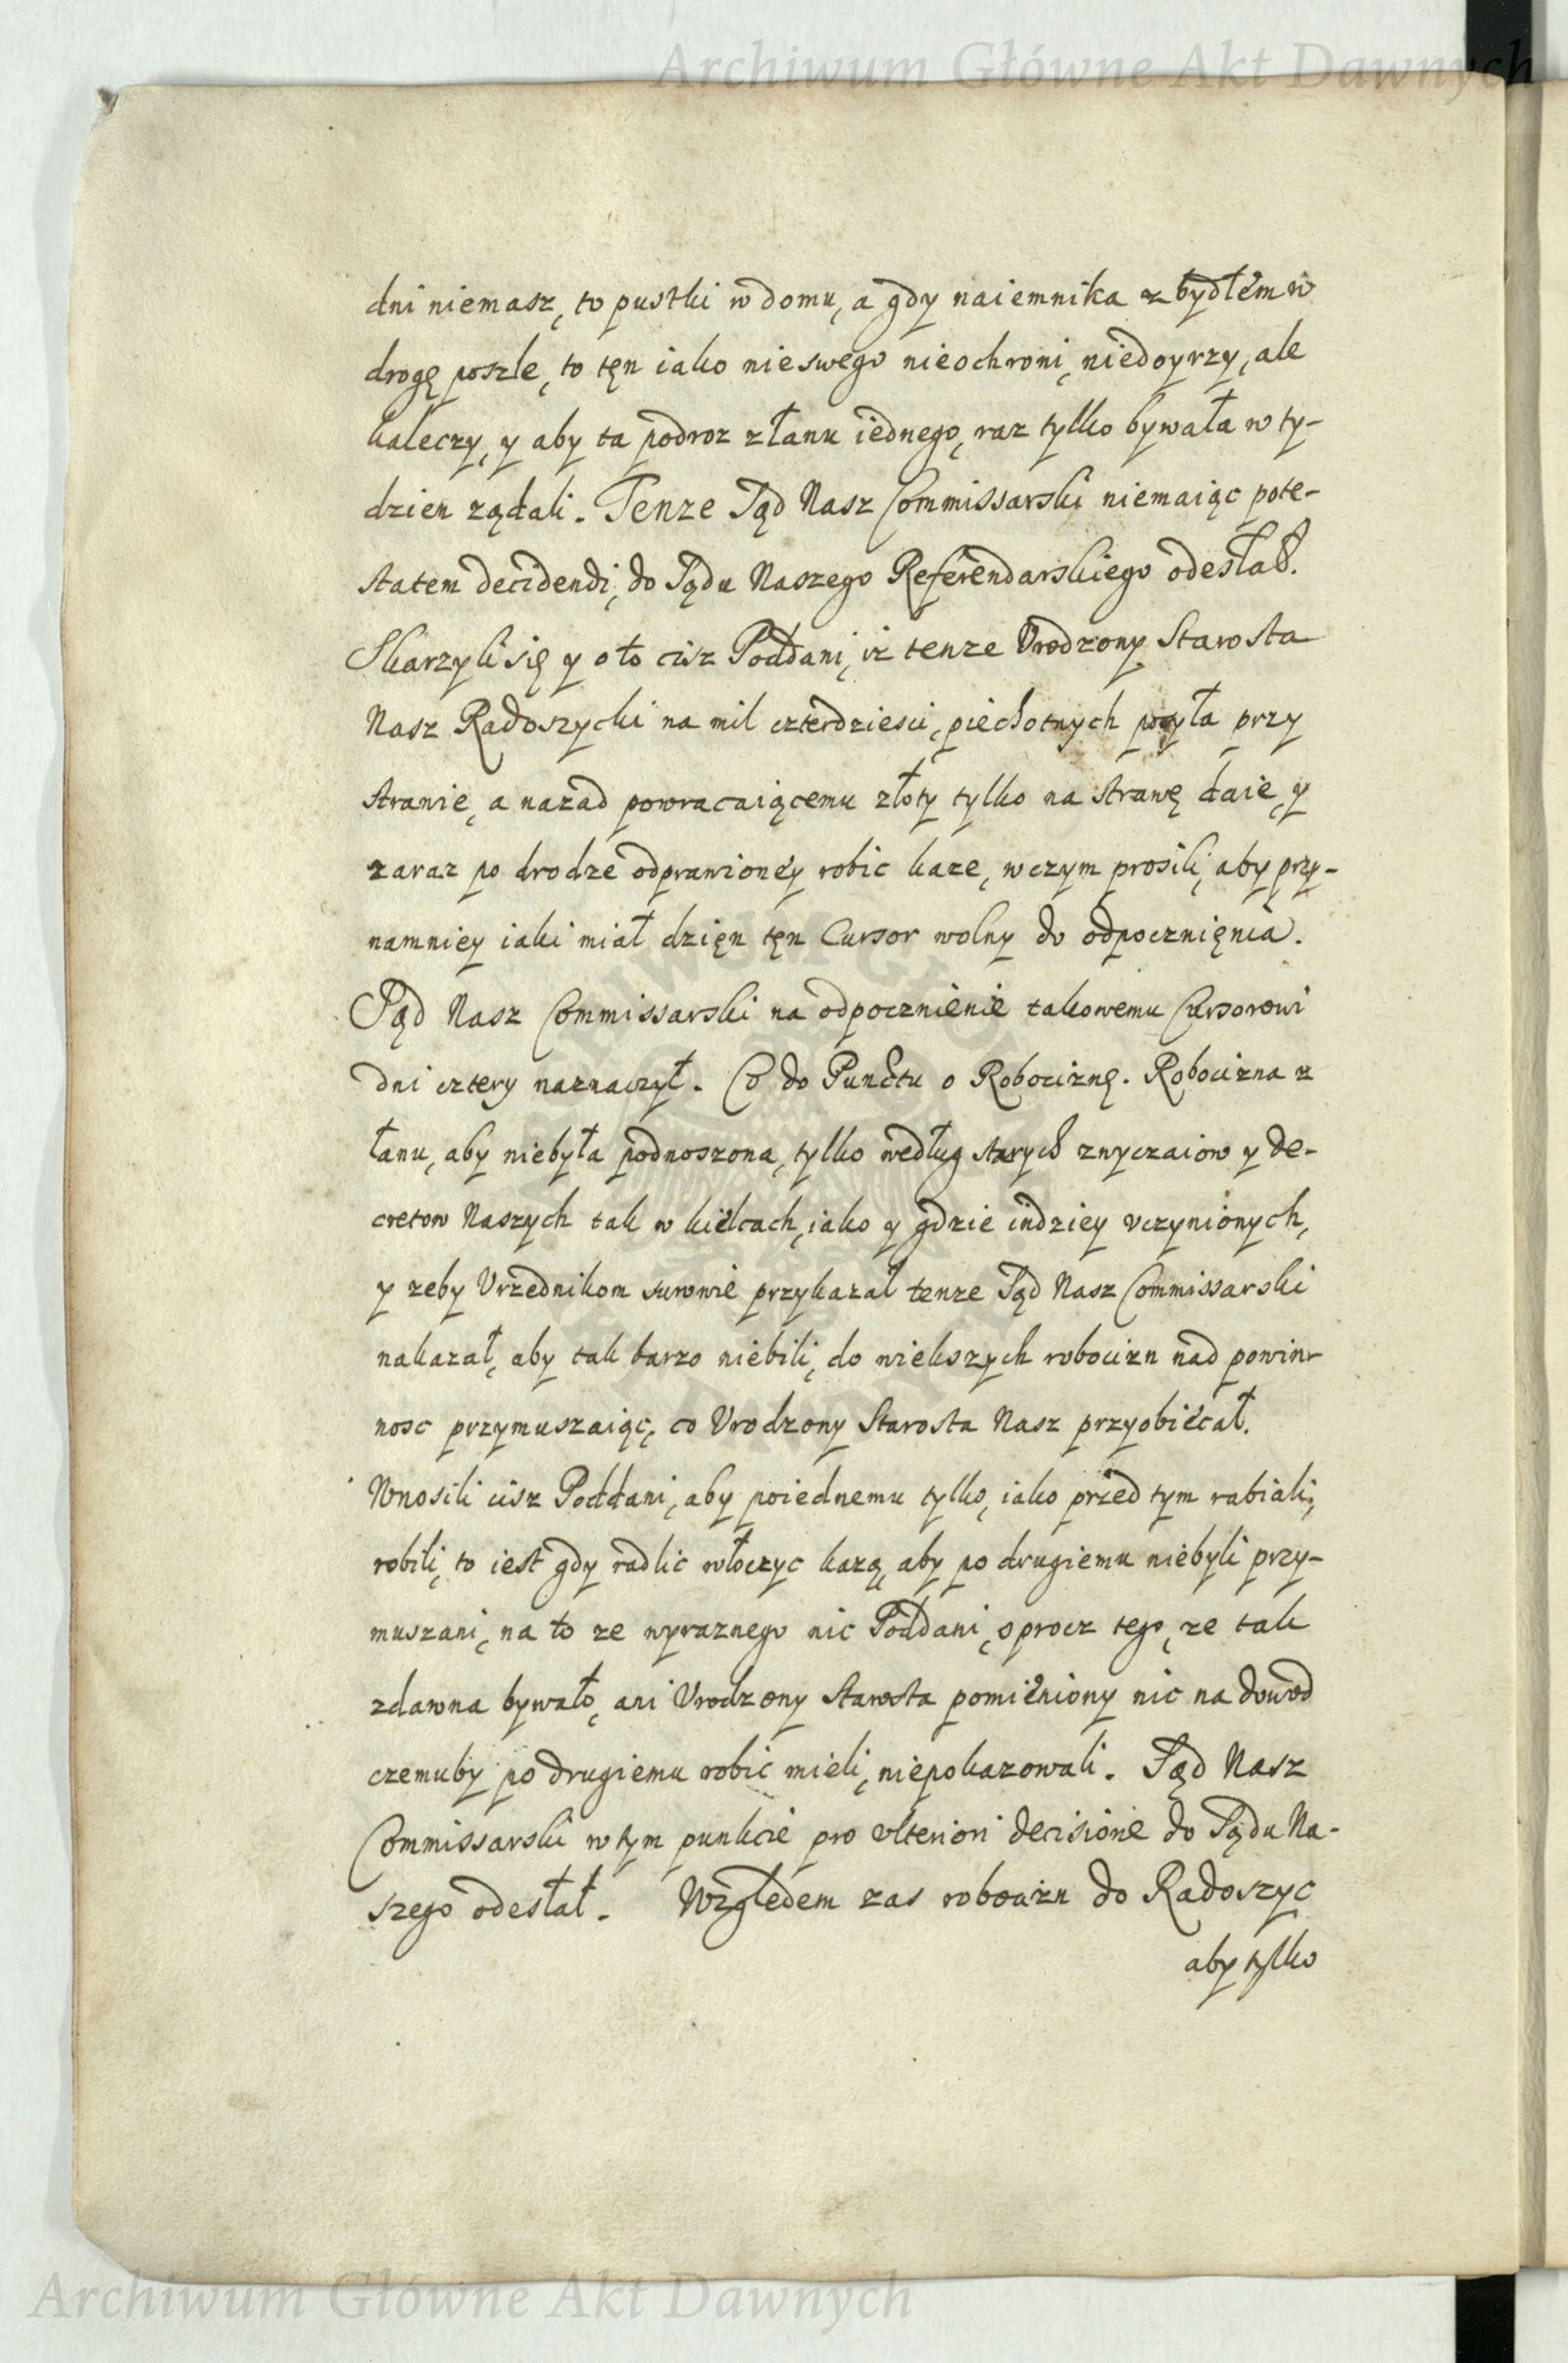 Archiwum Główne Akt Dawnych
dni niemasz, to pustki w domu, a gdy naiemnika z bydłem w
drogę poszle, to tęn iako nie swego nieochroni, niedoyrzy, ale
kaleczy, y aby ta podroz z łanu iednego, raz tylko bywała w ty-
dzien ządali. Tenze Sąd Nasz Commissarski niemaiąc pote-
statem decidendi, do Sądu Naszego Referendarskiego odesłał.
Skarzyli się y o to cisz Poddani, iz tenze Vrodzony Starosta
Nasz Radoszycki na mil czterdziesci, piechotnych posyła przy
strawie, a nazad powracaiącemu złoty tylko na strawę daie, y
zaraz po drodze odprawioney robic kaze, wczym prosili, aby przy-
namniey iaki miał dzięn tęn Cursor wolny do odpocznięnia.
Sąd Nasz Commissarski na odpocznienie takowemu Cursorowi
dni cztery naznaczył. Co do Punctu o Robociznę. Robocizna z
łanu, aby niebyła podnoszona, tylko według starych zwyczaiow y de-
cretow Naszych tak w kielcach, iako y gdzie indziey vczynionych,
y zeby Vrzednikom surowie przykazał tenze Sąd Nasz Commissarski
nakazał, aby tak barzo niebili, do wiekszych robocizn nad powin-
nosc przymuszaiąc, co Vrodzony Starosta Nasz przyobiecał.
Wnosili cisz Poddani, aby poiednemu tylko, iako przed tym rabiali,
robili, to iest gdy radlic włoczyc kazą, aby po drugiemu niebyli przy-
muszani, na to ze wyraznego nic Poddani, oprocz tego, ze tak
zdawna bywało, ani Vrodzony Starosta pomieniony nic na dowod
czemuby po drugiemu robic mieli, niepokazowali. Sąd Nasz
Commissarski w tym punkcie pro vlteriori decisione do Sądu Na-
szego odesłał. Względem zas robocizn do Radoszyc
aby tylko
Archiwum Główne Akt Dawnych